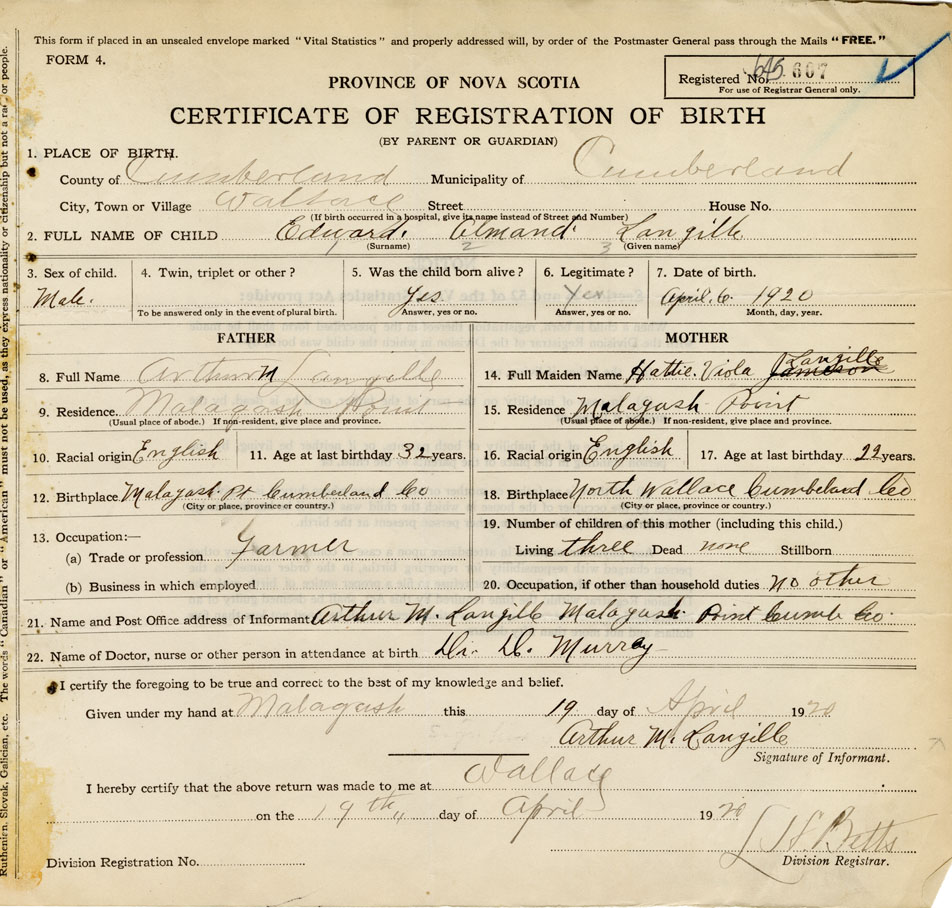 This form if placed in an unsealed envelope marked "Vital Statistics" and properly addressed will, by order of the Postmaster General pass through the Mails "FREE."
FORM 4.
Registered No. 645 607
For use of Registrar General only.
PROVINCE OF NOVA SCOTIA
CERTIFICATE OF REGISTRATION OF BIRTH
(BY PARENT OR GUARDIAN)
1. PLACE OF BIRTH.
County of Cumberland Municipality of Cumberland
City, Town or Village Wallace Street House No.
(If birth occurred in a hospital, give its name instead of Street and Number)
2. FULL NAME OF CHILD Edward Elmand Langille
(Surname) (Given name)
1 2 3
3. Sex of child. 4. Twin, triplet or other? 5. Was the child born alive? 6. Legitimate? 7. Date of birth.
Male. Yes Yes April. 6. 1920
To be answered only in the event of plural birth. Answer, yes or no. Answer, yes or no. Month, day, year.
FATHER MOTHER
8. Full Name Arthur M Langille 14. Full Maiden Name Hattie Viola Jameson Langille
9. Residence Malagash Point 15. Residence Malagash Point
(Usual place of abode.) If non-resident, give place and province. (Usual place of abode.) If non-resident, give place and province.
10. Racial origin English 11. Age at last birthday 32 years. 16. Racial origin English 17. Age at last birthday 22 years.
12. Birthplace Malagash Pt Cumberland Co 18. Birthplace North Wallace Cumbeland Co
(City or place, province or country.) (City or place, province or country.)
13. Occupation:— 19. Number of children of this mother (including this child.)
(a) Trade or profession Farmer Living three Dead none Stillborn
(b) Business in which employed 20. Occupation, if other than household duties no other
21. Name and Post Office address of Informant Arthur M. Langille Malagash Point Cumb Co
22. Name of Doctor, nurse or other person in attendance at birth Dr. D. Murray
I certify the foregoing to be true and correct to the best of my knowledge and belief.
Given under my hand at Malagash this 19 day of April 1920
Arthur M. Langille
Signature of Informant.
I hereby certify that the above return was made to me at Wallace
on the 19th day of April 1920
L H Betts
Division Registrar.
Division Registration No.
Ruthenien, Slovak, Galician, etc. The words "Canadian" or "American" must not be used, as they express nationality or citizenship but not a race or people.